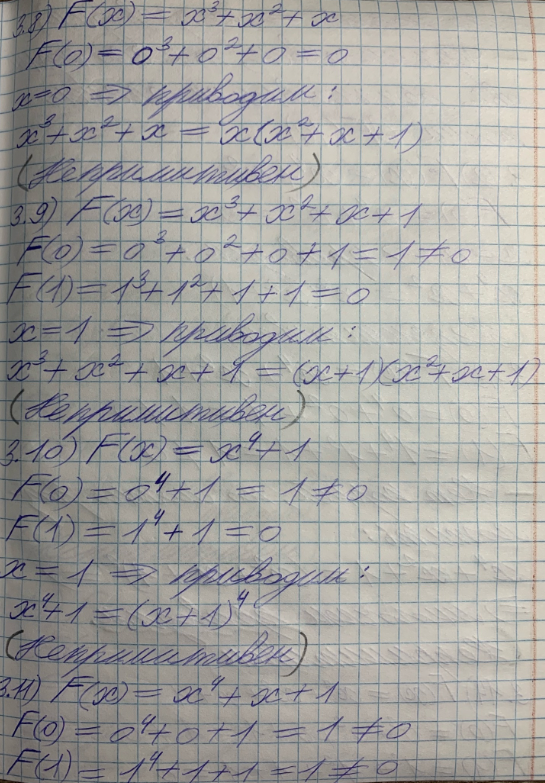 3.8) F(x) = x³ + x² + x
F(0) = 0³ + 0² + 0 = 0
x = 0 => приводим:
x³ + x² + x = x(x² + x + 1)
(Непримитивен)
3.9) F(x) = x³ + x² + x + 1
F(0) = 0³ + 0² + 0 + 1 = 1 ≠ 0
F(1) = 1³ + 1² + 1 + 1 = 0
x = 1 => приводим:
x³ + x² + x + 1 = (x+1)(x²+x+1)
(Непримитивен)
3.10) F(x) = x⁴ + 1
F(0) = 0⁴ + 1 = 1 ≠ 0
F(1) = 1⁴ + 1 = 0
x = 1 => приводим:
x⁴ + 1 = (x+1)⁴
(Непримитивен)
3.11) F(x) = x⁴ + x + 1
F(0) = 0⁴ + 0 + 1 = 1 ≠ 0
F(1) = 1⁴ + 1 + 1 = 1 ≠ 0